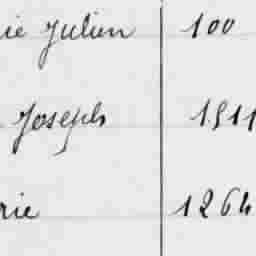 ie Julien 100
Joseph 1511
rie 1264